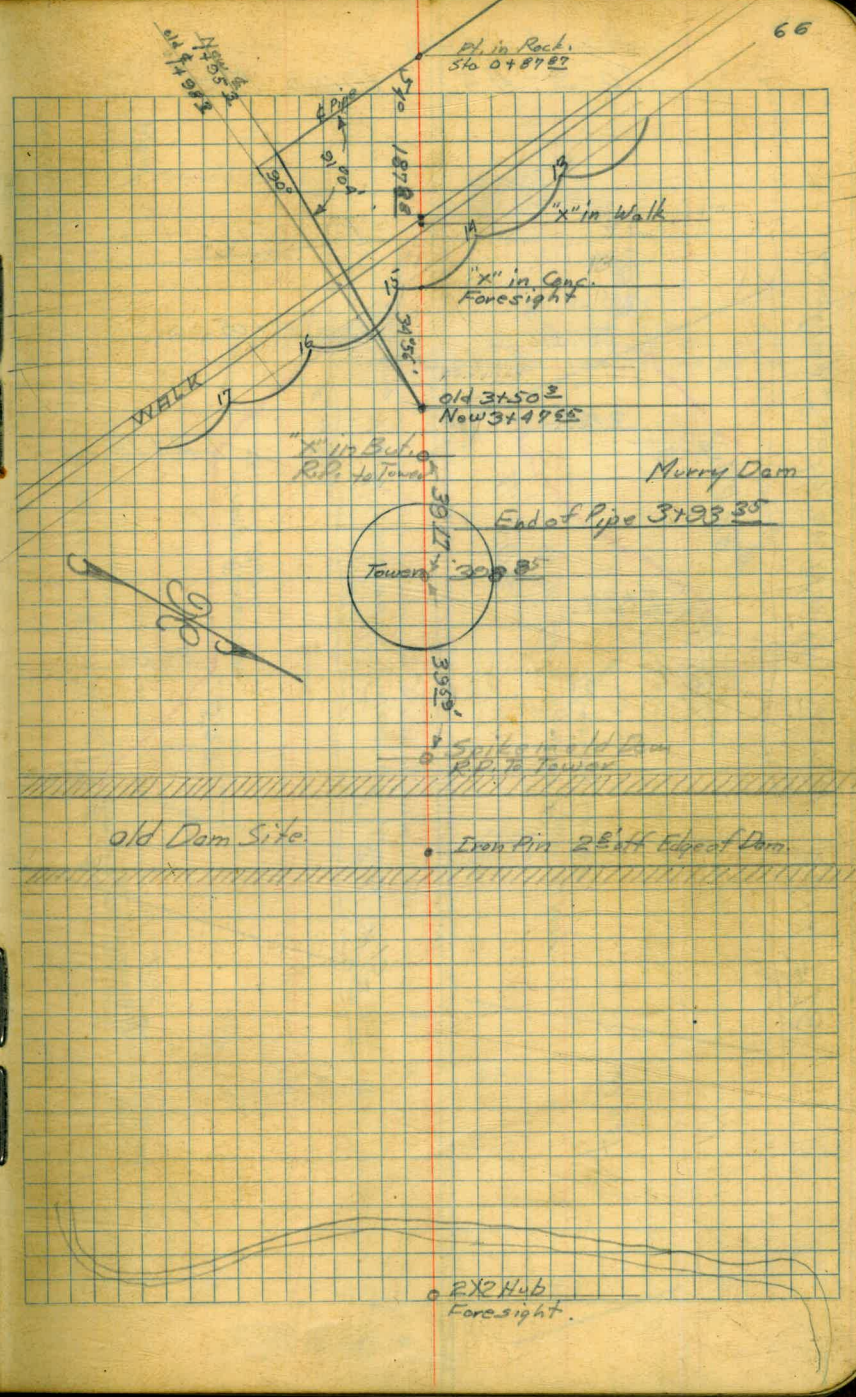 66
Pt. in Rock.
Sta 0+87 87
New ₵
1+95 3
old ₵
1+98 3
Pipe
90°
187 88
13
"X" in Walk
14
"X" in Conc.
Foresight
15
34°56'
16
17
WALK
old 3+50 3
New 3+47 65
"X" in But.
R.P. to Tower
Murry Dam
39.17
End of Pipe 3+93 35
Tower
39 59'
Spike in old Dam
R.P. To Tower
old Dam Site.
Iron Pin 2 8' off Edge of Dam.
2X2 Hub
Foresight.